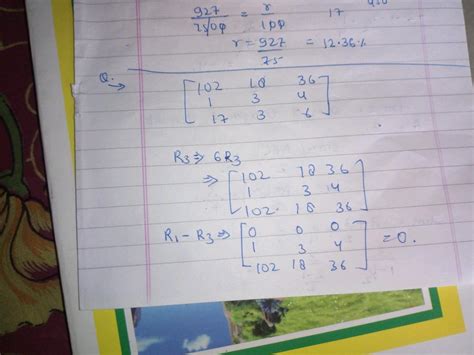 927 = r 17
7500 100
r = 927 = 12.36%
75
Q. → [102 18 36
1 3 4
17 3 6]
R3 ⇒ 6R3
⇒ [102 18 36
1 3 4
102 18 36]
R1 - R3 ⇒ [0 0 0
1 3 4
102 18 36] = 0.